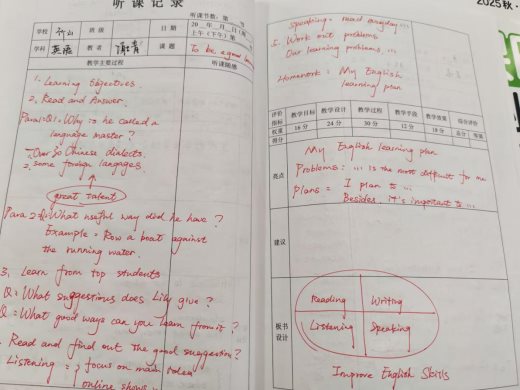 听课记录
听课节数：第 节
学校 班级 日期 20 年 月 日（周
上午（下午）第
学科 英语 教者 课题 To be a good
教学主要过程 听课随感
1. Learning Objectives.
2. Read and Answer.
Para1: Q1: Why is he called a
language master?
1. Over 30 Chinese dialects.
2. some foreign languages.
great talent
Para 2: Q: What useful way did he have?
Example: Row a boat against
the running water.
3. Learn from top students
Q: What suggestions does Lily give?
Q: What good ways can you learn from it?
Read and find out The good suggestion?
Listening = focus on main idea
online shows
Speaking = read
5. Work out problems
Our learning problems ...
Homework: My English
learning plan
评价指标 教学目标 教学设计 教学过程 教学手段 教学效果 综合评价
权重 16分 24分 30分 12分 18分 总分 等第
得分
亮点
My English learning plan
Problems: ... is the most difficult for me
Plans = I plan to ...
Besides, it's important to ...
建议
板书设计
Reading Writing
Listening Speaking
Improve English Skills
2025秋